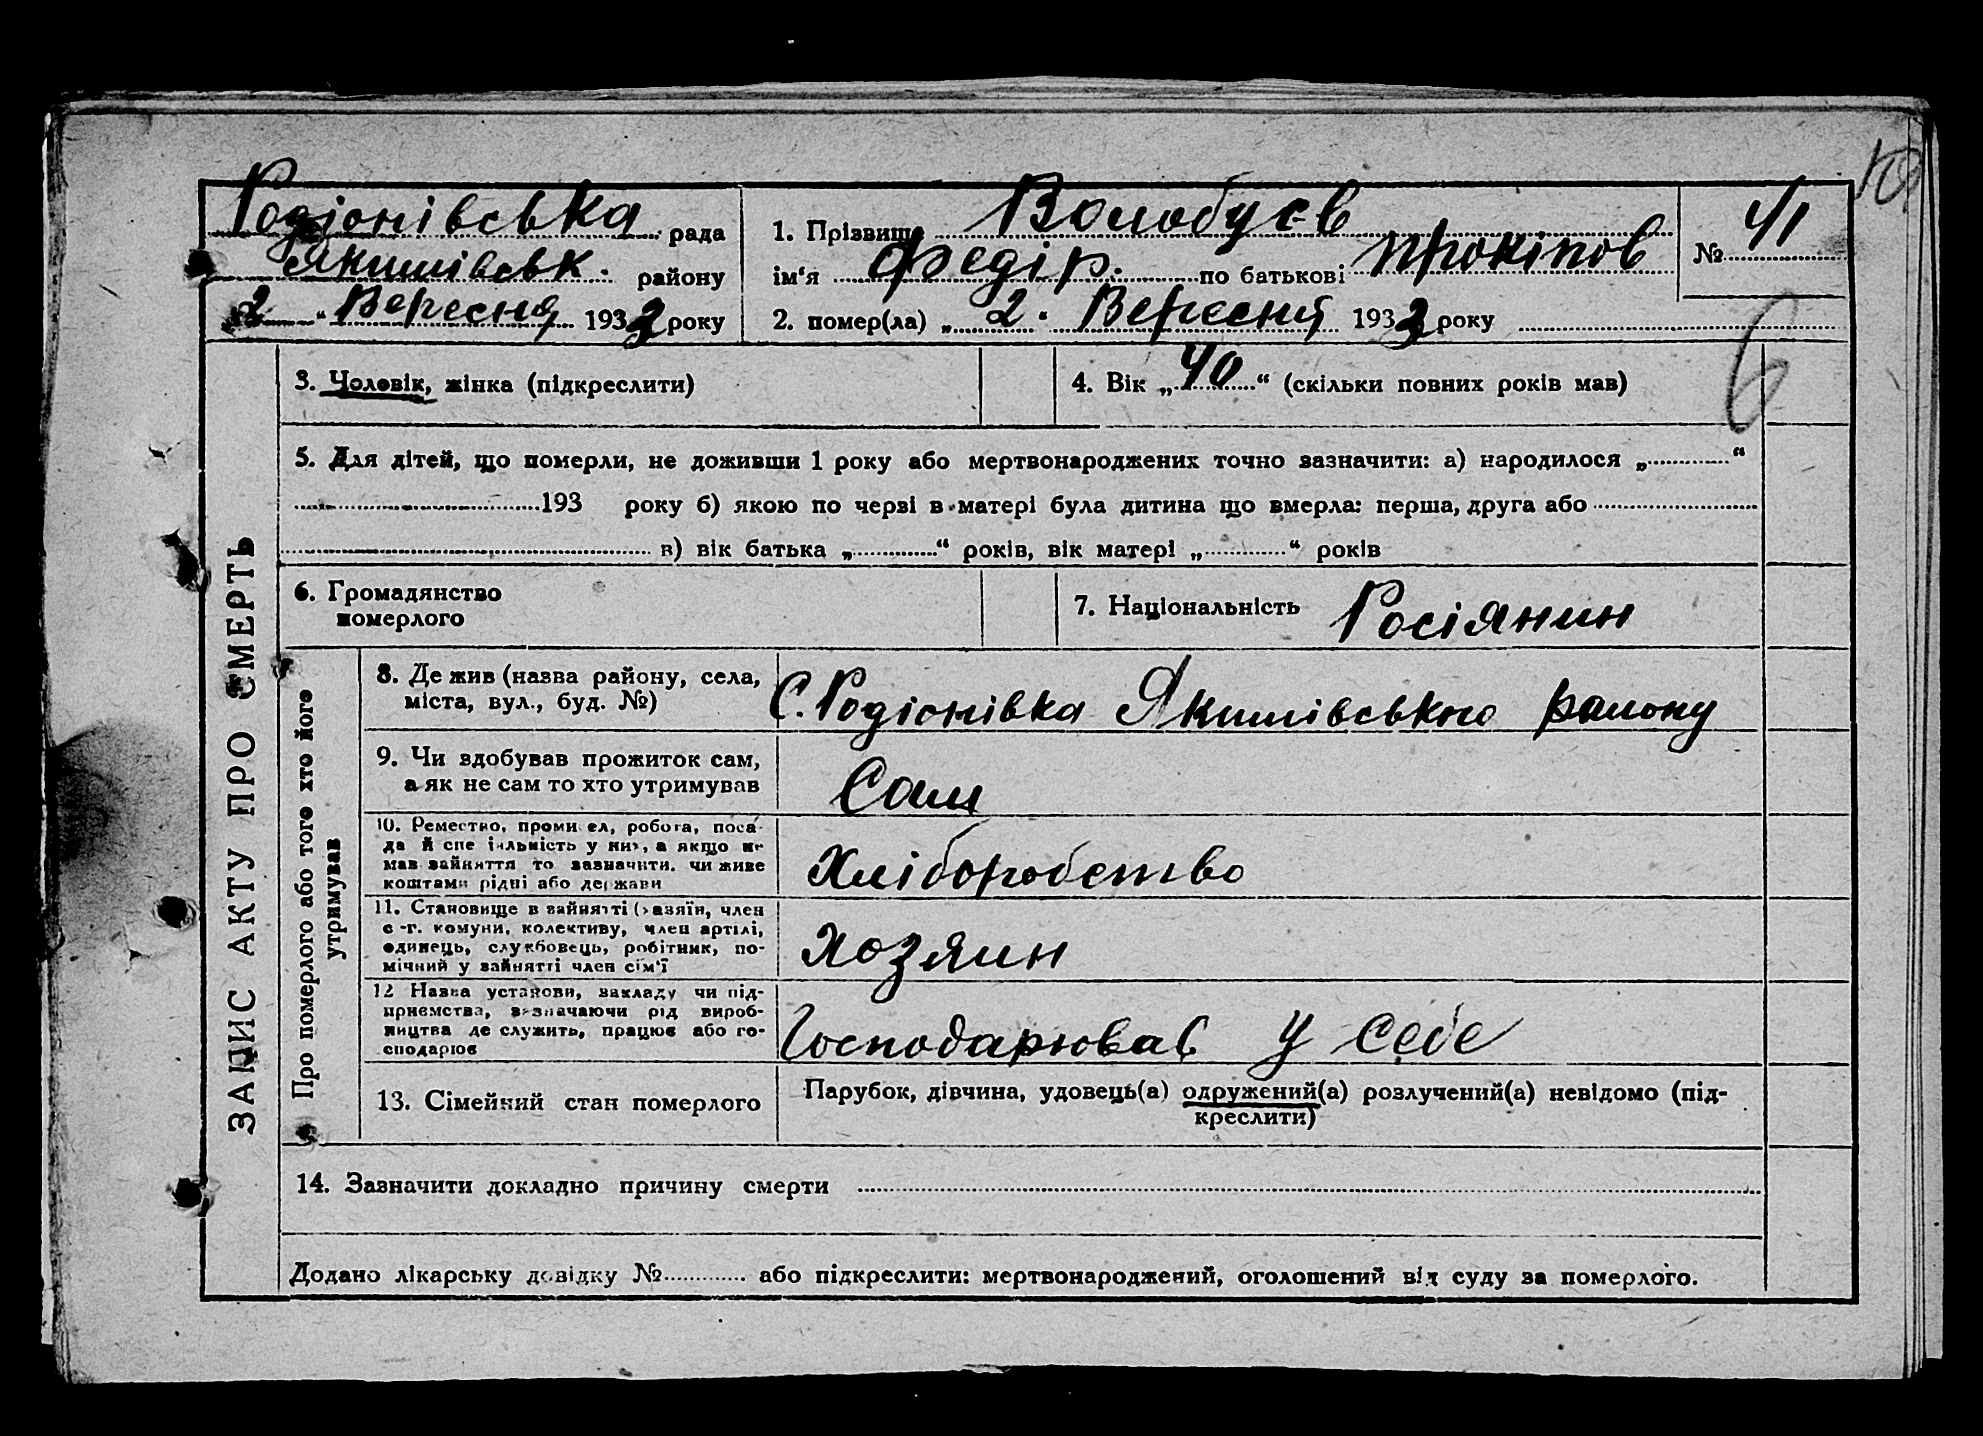 Родіонівська рада
Якимівськ. району
2 " Вересня 1933 року
1. Прізвище Волобуєв
ім'я Федір. по батькові Прокіпов
№ 41
2. помер(ла) „ 2 " Вересня 1933 року
3. Чоловік, жінка (підкреслити)
4. Вік „ 40 “ (скільки повних років мав)
6
5. Для дітей, що померли, не доживши 1 року або мертвонароджених точно зазначити: а) народилося „ “
193 року б) якою по черві в матері була дитина що вмерла: перша, друга або
в) вік батька „ “ років, вік матері „ “ років
6. Громадянство
померлого
7. Національність Росіянин
ЗАПИС АКТУ ПРО СМЕРТЬ
Про померлого або того хто його
утримував
8. Де жив (назва району, села,
міста, вул., буд. №)
С. Родіонівка Якимівського району
9. Чи здобував прожиток сам,
а як не сам то хто утримував
Сам
10. Ремество, промисел, робота, поса-
да й спеціяльність у ній, а якщо не
мав зайняття то зазначити. чи живе
коштами рідні або держави
Хліборобство
11. Становище в зайнятті (хазяїн, член
с.-г. комуни, колективу, член артілі,
одинець, службовець, робітник, по-
мічний у зайнятті член сім'ї
Хозяин
12 Назва установи, закладу чи під-
приємства, визначаючи рід вироб-
ництва де служить, працює або го-
сподарює
Господарював у себе
13. Сімейний стан померлого
Парубок, дівчина, удовець(а) одружений(а) розлучений(а) невідомо (під-
креслити)
14. Зазначити докладно причину смерти
Додано лікарську довідку № або підкреслити: мертвонароджений, оголошений від суду за померлого.